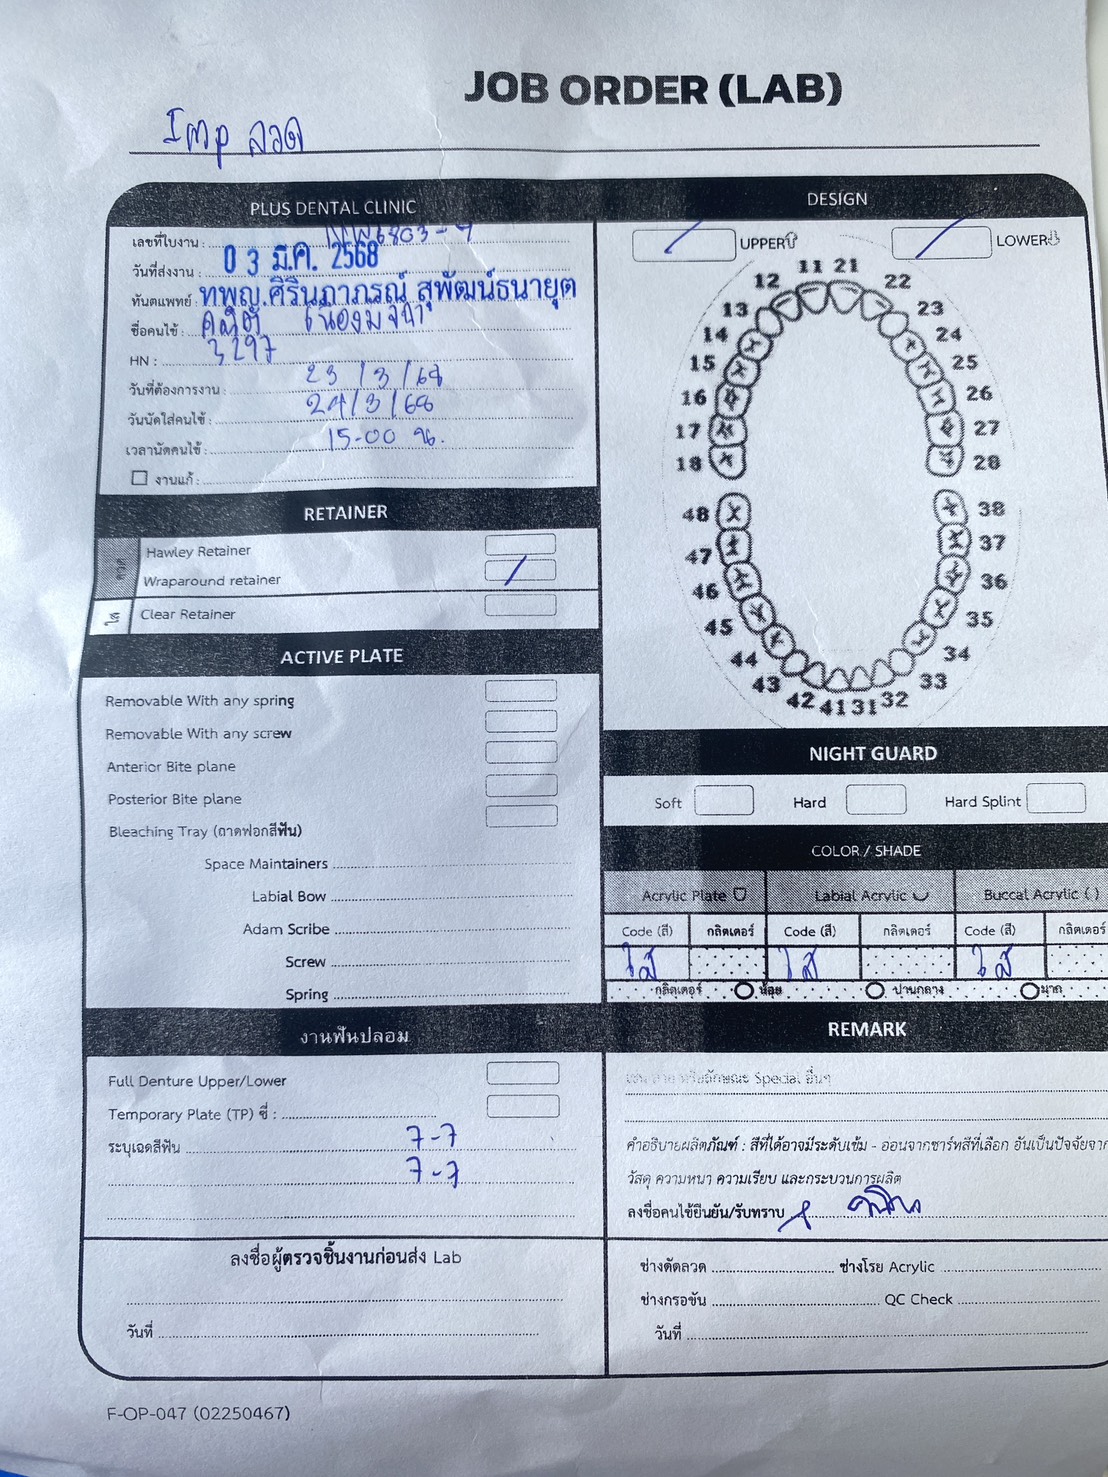 JOB ORDER (LAB)
Imp ลวด
PLUS DENTAL CLINIC
เลขที่ใบงาน : 6803-9
วันที่ส่งงาน : 0 3 มี.ค. 2568
ทันตแพทย์ : ทพญ.ศิรินภาภรณ์ สุพัฒน์ธนายุต
ชื่อคนไข้ :
HN : 3297
วันที่ต้องการงาน : 23/3/68
วันนัดใส่คนไข้ : 24/3/68
เวลานัดคนไข้ : 15-00 น.
งานแก้ :
RETAINER
ลวด
Hawley Retainer
Wraparound retainer
ใส
Clear Retainer
ACTIVE PLATE
Removable With any spring
Removable With any screw
Anterior Bite plane
Posterior Bite plane
Bleaching Tray (ถาดฟอกสีฟัน)
Space Maintainers
Labial Bow
Adam Scribe
Screw
Spring
งานฟันปลอม
Full Denture Upper/Lower
Temporary Plate (TP) ซี่ :
ระบุเฉดสีฟัน 7-7
7-7
ลงชื่อผู้ตรวจชิ้นงานก่อนส่ง Lab
วันที่
DESIGN
UPPER LOWER
11 21
12 22
13 23
14 24
15 25
16 26
17 27
18 28
48 38
47 37
46 36
45 35
44 34
43 33
42 41 31 32
NIGHT GUARD
Soft Hard Hard Splint
COLOR / SHADE
Acrylic Plate Labial Acrylic Buccal Acrylic ( )
Code (สี) กลิตเตอร์ Code (สี) กลิตเตอร์ Code (สี) กลิตเตอร์
ใส ใส ใส
กลิตเตอร์ น้อย ปานกลาง มาก
REMARK
Special อื่นๆ
คำอธิบายผลิตภัณฑ์ : สีที่ได้อาจมีระดับเข้ม - ออนจากชาร์ทสีที่เลือก อันเป็นปัจจัยจาก
วัสดุ ความหนา ความเรียบ และกระบวนการผลิต
ลงชื่อคนไข้ยืนยัน/รับทราบ
ช่างดัดลวด ช่างโรย Acrylic
ช่างกรอขัน QC Check
วันที่
F-OP-047 (02250467)